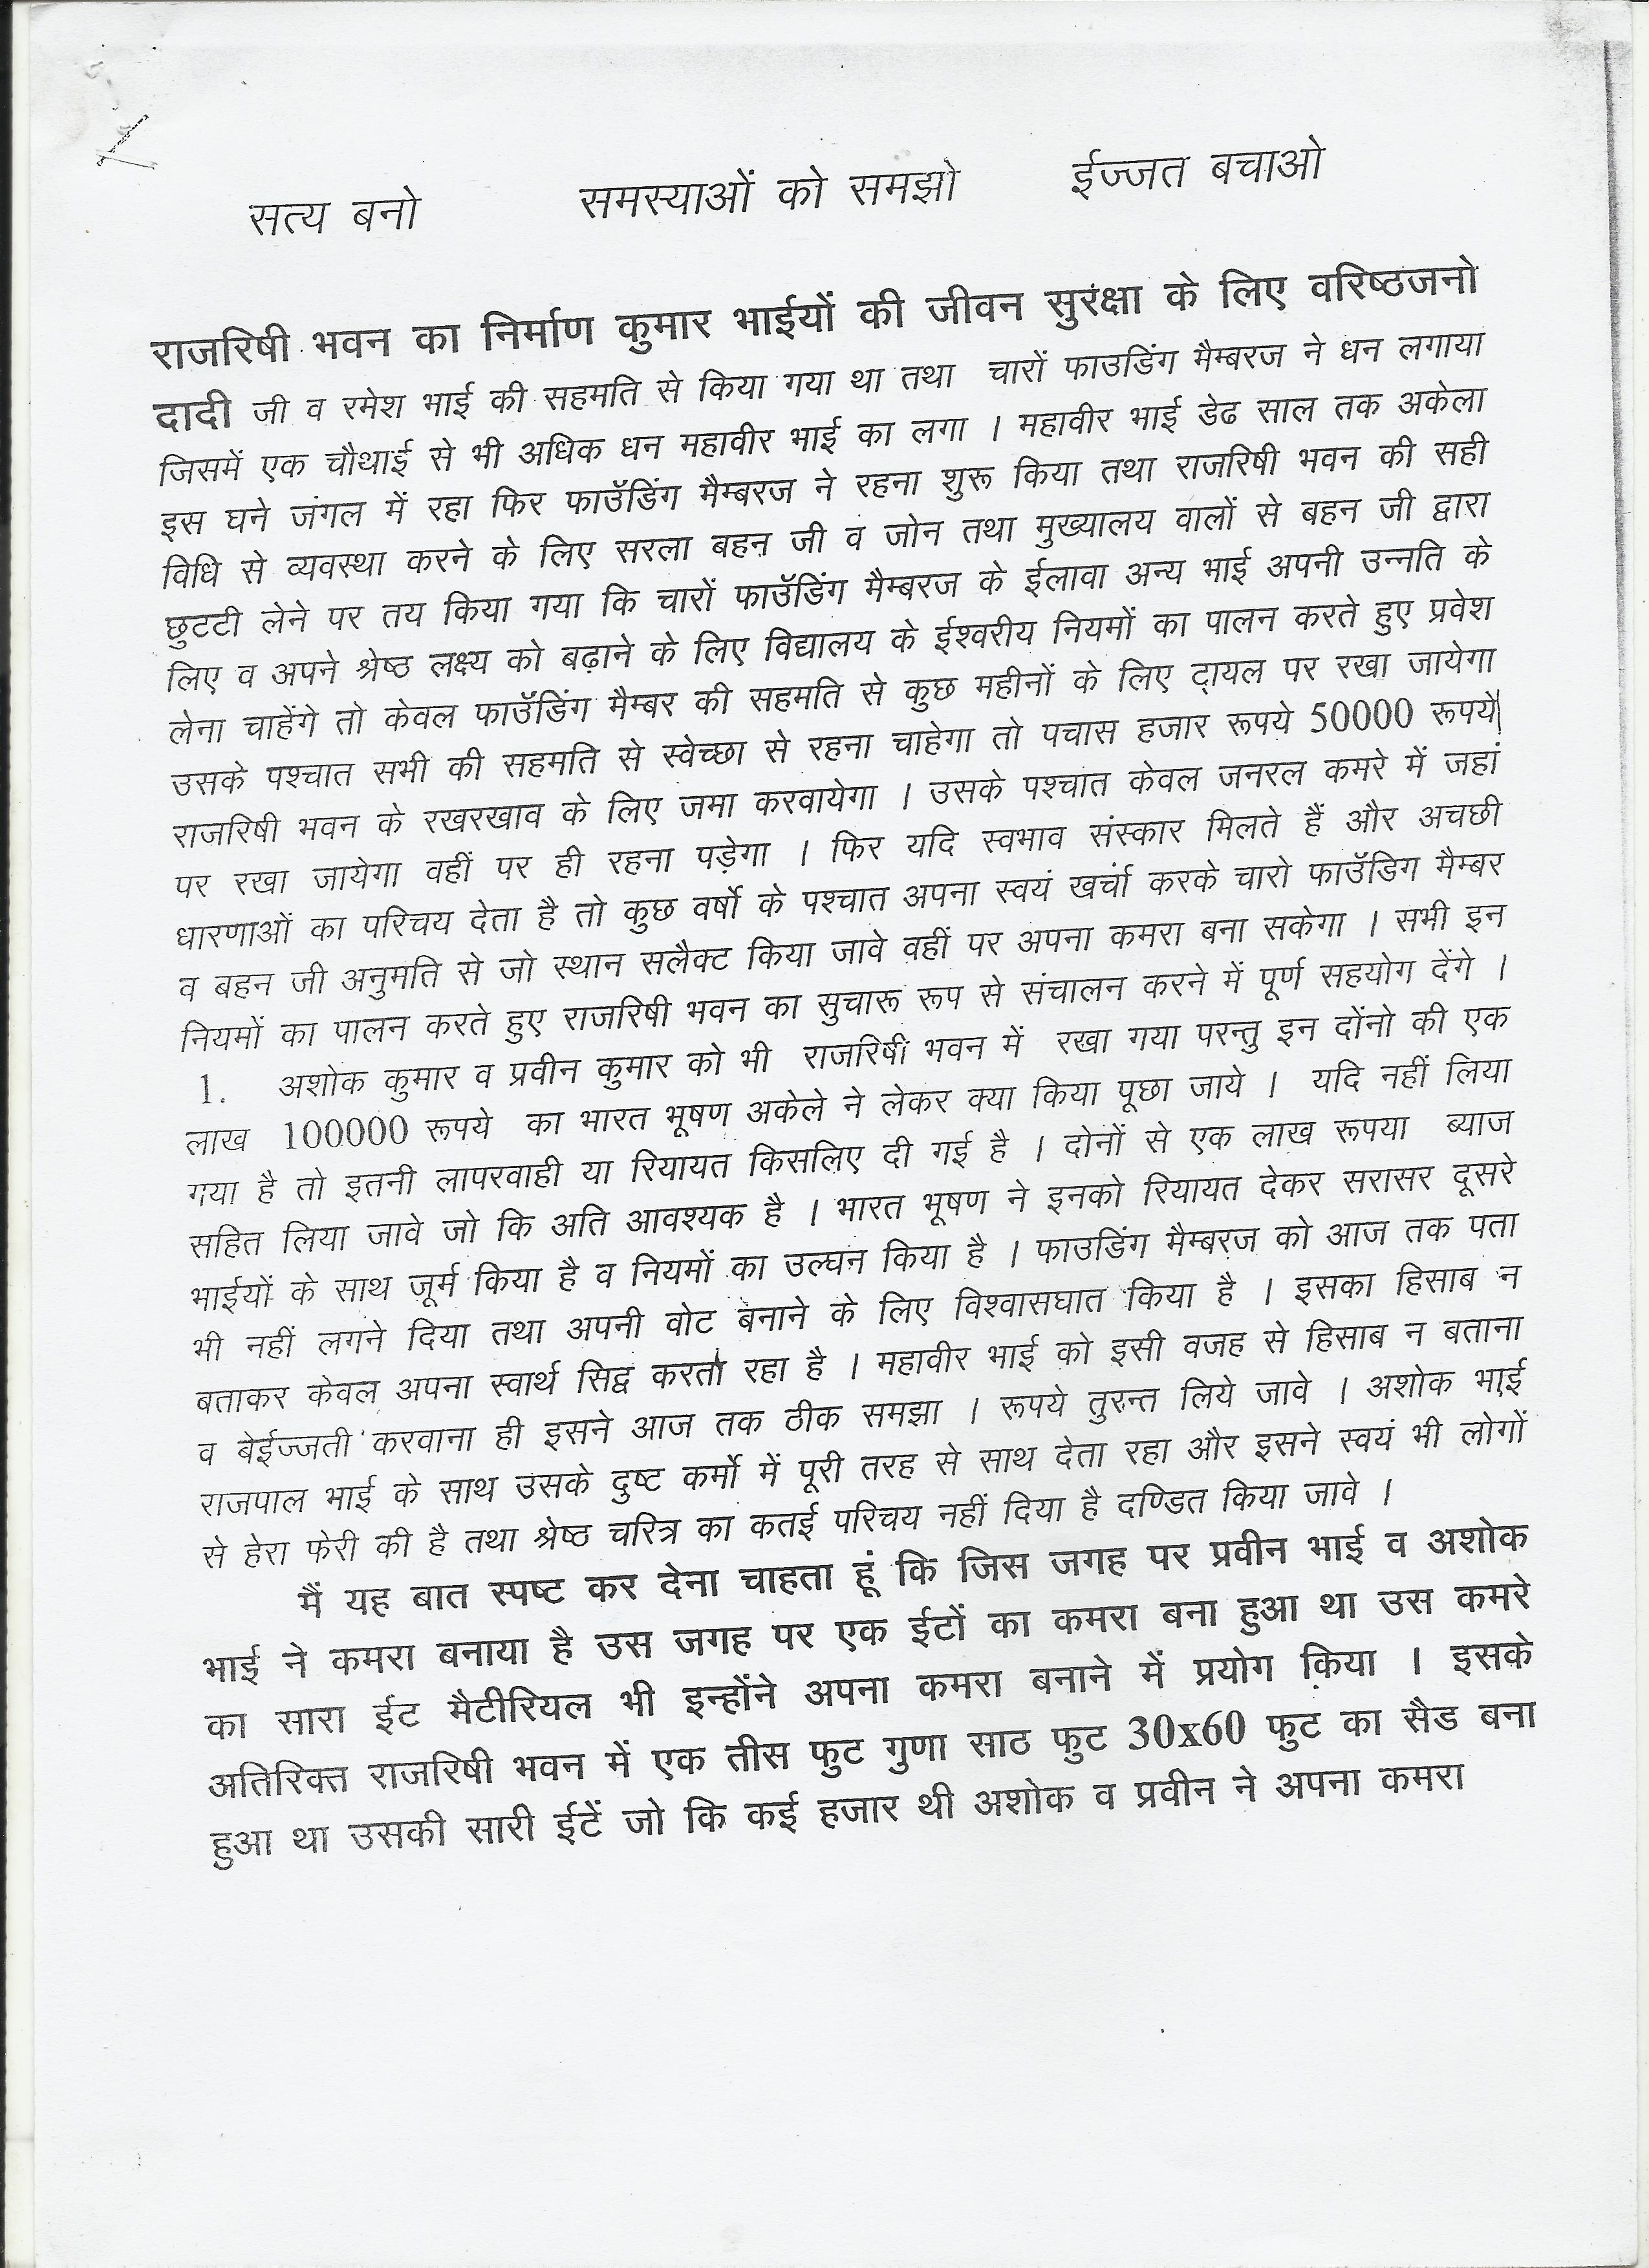 सत्य बनो समस्याओं को समझो ईज्जत बचाओ
राजरिषी भवन का निर्माण कुमार भाईयों की जीवन सुरंक्षा के लिए वरिष्ठजनो
दादी जी व रमेश भाई की सहमति से किया गया था तथा चारों फाउडिंग मैम्बरज ने धन लगाया
जिसमें एक चौथाई से भी अधिक धन महावीर भाई का लगा । महावीर भाई डेढ साल तक अकेला
इस घने जंगल में रहा फिर फाउॅडिंग मैम्बरज ने रहना शुरू किया तथा राजरिषी भवन की सही
विधि से व्यवस्था करने के लिए सरला बहन जी व जोन तथा मुख्यालय वालों से बहन जी द्वारा
छुटटी लेने पर तय किया गया कि चारों फाउॅडिंग मैम्बरज के ईलावा अन्य भाई अपनी उन्नति के
लिए व अपने श्रेष्ठ लक्ष्य को बढ़ाने के लिए विद्यालय के ईश्वरीय नियमों का पालन करते हुए प्रवेश
लेना चाहेंगे तो केवल फाउॅडिंग मैम्बर की सहमति से कुछ महीनों के लिए ट्रायल पर रखा जायेगा
उसके पश्चात सभी की सहमति से स्वेच्छा से रहना चाहेगा तो पचास हजार रूपये 50000 रूपये
राजरिषी भवन के रखरखाव के लिए जमा करवायेगा । उसके पश्चात केवल जनरल कमरे में जहां
पर रखा जायेगा वहीं पर ही रहना पड़ेगा । फिर यदि स्वभाव संस्कार मिलते हैं और अचछी
धारणाओं का परिचय देता है तो कुछ वर्षो के पश्चात अपना स्वयं खर्चा करके चारो फाउॅडिग मैम्बर
व बहन जी अनुमति से जो स्थान सलैक्ट किया जावे वहीं पर अपना कमरा बना सकेगा । सभी इन
नियमों का पालन करते हुए राजरिषी भवन का सुचारू रूप से संचालन करने में पूर्ण सहयोग देंगे ।
1. अशोक कुमार व प्रवीन कुमार को भी राजरिषी भवन में रखा गया परन्तु इन दोंनो की एक
लाख 100000 रूपये का भारत भूषण अकेले ने लेकर क्या किया पूछा जाये । यदि नहीं लिया
गया है तो इतनी लापरवाही या रियायत किसलिए दी गई है । दोनों से एक लाख रूपया ब्याज
सहित लिया जावे जो कि अति आवश्यक है । भारत भूषण ने इनको रियायत देकर सरासर दूसरे
भाईयों के साथ जूर्म किया है व नियमों का उल्घन किया है । फाउडिंग मैम्बरज को आज तक पता
भी नहीं लगने दिया तथा अपनी वोट बनाने के लिए विश्वासघात किया है । इसका हिसाब न
बताकर केवल अपना स्वार्थ सिद्व करता रहा है । महावीर भाई को इसी वजह से हिसाब न बताना
व बेईज्जती करवाना ही इसने आज तक ठीक समझा । रूपये तुरन्त लिये जावे । अशोक भाई
राजपाल भाई के साथ उसके दुष्ट कर्मो में पूरी तरह से साथ देता रहा और इसने स्वयं भी लोगों
से हेरा फेरी की है तथा श्रेष्ठ चरित्र का कतई परिचय नहीं दिया है दण्डित किया जावे ।
मैं यह बात स्पष्ट कर देना चाहता हूं कि जिस जगह पर प्रवीन भाई व अशोक
भाई ने कमरा बनाया है उस जगह पर एक ईटों का कमरा बना हुआ था उस कमरे
का सारा ईट मैटीरियल भी इन्होंने अपना कमरा बनाने में प्रयोग किया । इसके
अतिरिक्त राजरिषी भवन में एक तीस फुट गुणा साठ फुट 30x60 फुट का सैड बना
हुआ था उसकी सारी ईटें जो कि कई हजार थी अशोक व प्रवीन ने अपना कमरा